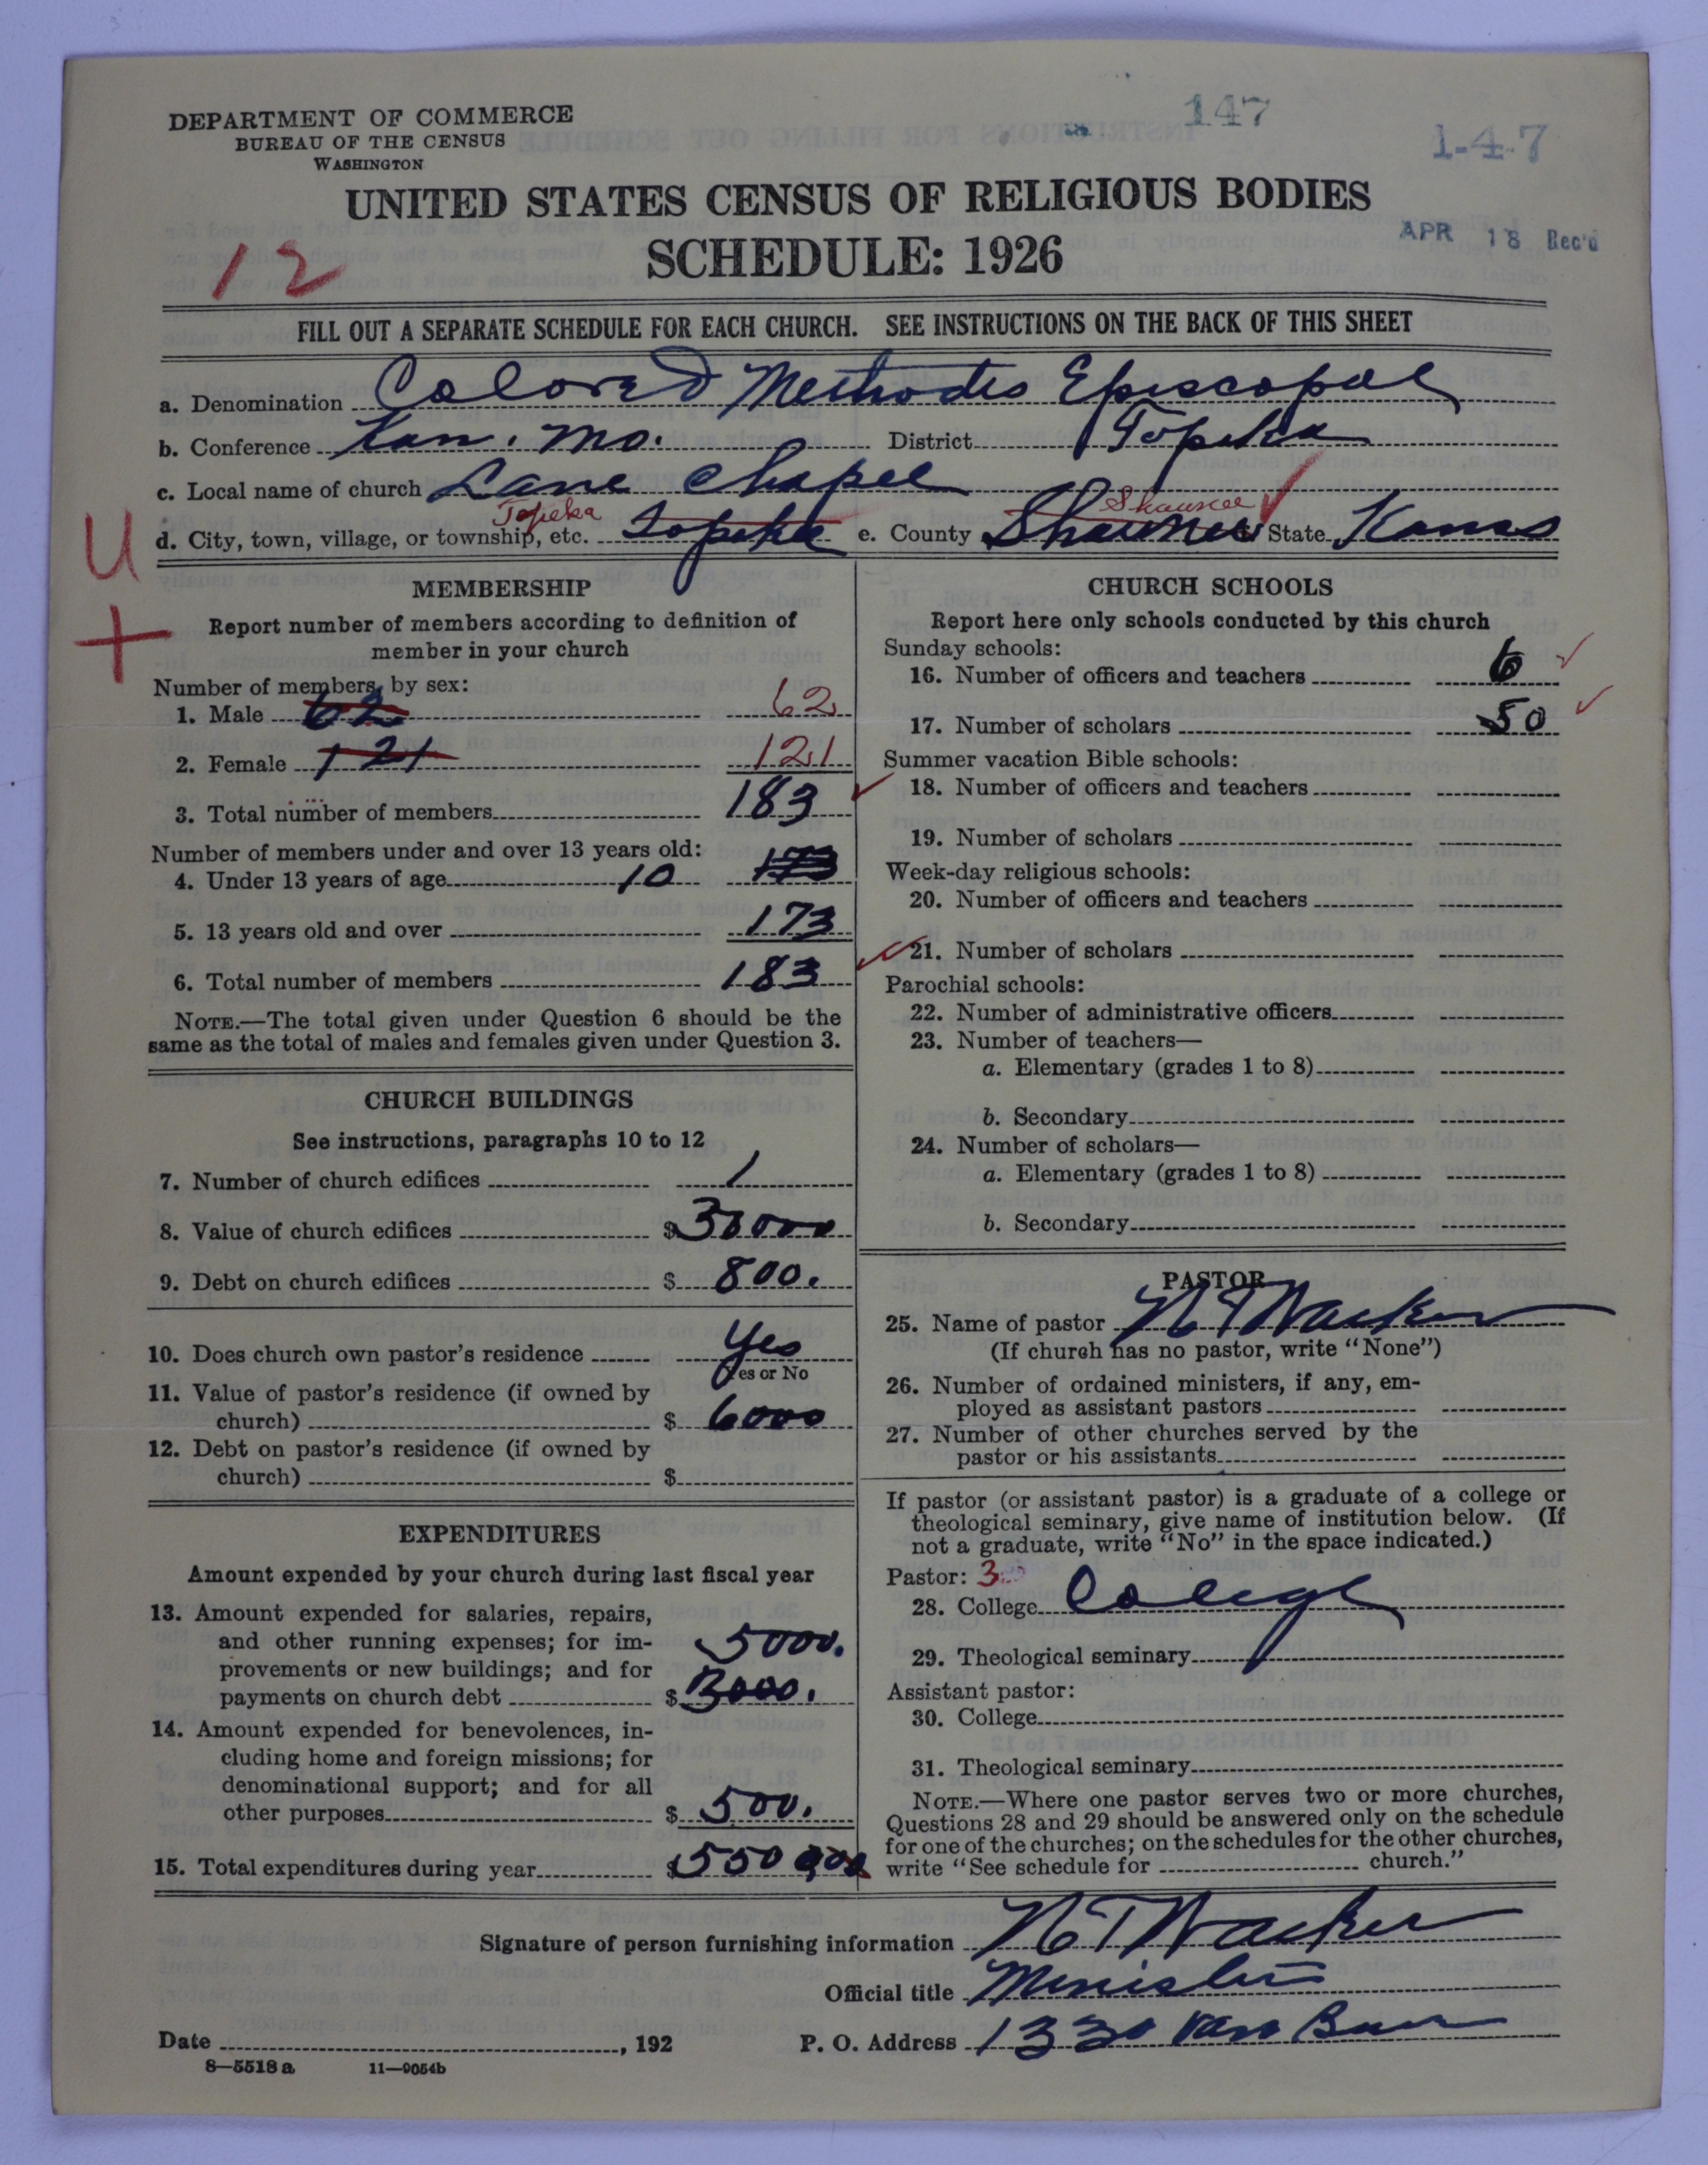 147
1-4-7
DEPARTMENT OF COMMERCE
BUREAU OF THE CENSUS
WASHINGTON
UNITED STATES CENSUS OF RELIGIOUS BODIES
SCHEDULE: 1926
APR 18 Rec'd
12
FILL OUT A SEPARATE SCHEDULE FOR EACH CHURCH. SEE INSTRUCTIONS ON THE BACK OF THIS SHEET
a. Denomination Colored Methodis Episcopal
b. Conference Kan. Mo. District Topeka
c. Local name of church Lane Chapel
Topeka Shawnee
d. City, town, village, or township, etc. Topeka e. County Shawnee State Kansas
U
+
MEMBERSHIP
Report number of members according to definition of
member in your church
Number of members, by sex:
1. Male 62 62
2. Female 121 121
3. Total number of members 183
Number of members under and over 13 years old:
4. Under 13 years of age 10 173
5. 13 years old and over 173
6. Total number of members 183
NOTE.—The total given under Question 6 should be the
same as the total of males and females given under Question 3.
CHURCH BUILDINGS
See instructions, paragraphs 10 to 12
7. Number of church edifices 1
8. Value of church edifices $ 30000
9. Debt on church edifices $ 800.
10. Does church own pastor's residence Yes
Yes or No
11. Value of pastor's residence (if owned by
church) $ 6000
12. Debt on pastor's residence (if owned by
church) $
EXPENDITURES
Amount expended by your church during last fiscal year
13. Amount expended for salaries, repairs,
and other running expenses; for im-
provements or new buildings; and for
payments on church debt $ 5000.
3000.
14. Amount expended for benevolences, in-
cluding home and foreign missions; for
denominational support; and for all
other purposes $ 500.
15. Total expenditures during year $ 5500
CHURCH SCHOOLS
Report here only schools conducted by this church
Sunday schools:
16. Number of officers and teachers 6
17. Number of scholars 50
Summer vacation Bible schools:
18. Number of officers and teachers
19. Number of scholars
Week-day religious schools:
20. Number of officers and teachers
21. Number of scholars
Parochial schools:
22. Number of administrative officers
23. Number of teachers—
a. Elementary (grades 1 to 8)
b. Secondary
24. Number of scholars—
a. Elementary (grades 1 to 8)
b. Secondary
PASTOR
25. Name of pastor N T Wacker
(If church has no pastor, write "None")
26. Number of ordained ministers, if any, em-
ployed as assistant pastors
27. Number of other churches served by the
pastor or his assistants
If pastor (or assistant pastor) is a graduate of a college or
theological seminary, give name of institution below. (If
not a graduate, write "No" in the space indicated.)
Pastor: 3
28. College College
29. Theological seminary
Assistant pastor:
30. College
31. Theological seminary
NOTE.—Where one pastor serves two or more churches,
Questions 28 and 29 should be answered only on the schedule
for one of the churches; on the schedules for the other churches,
write "See schedule for church."
Signature of person furnishing information N T Wacker
Official title Minister
Date , 192 P. O. Address 1330 Van Buren
8—5518 a 11—9054b